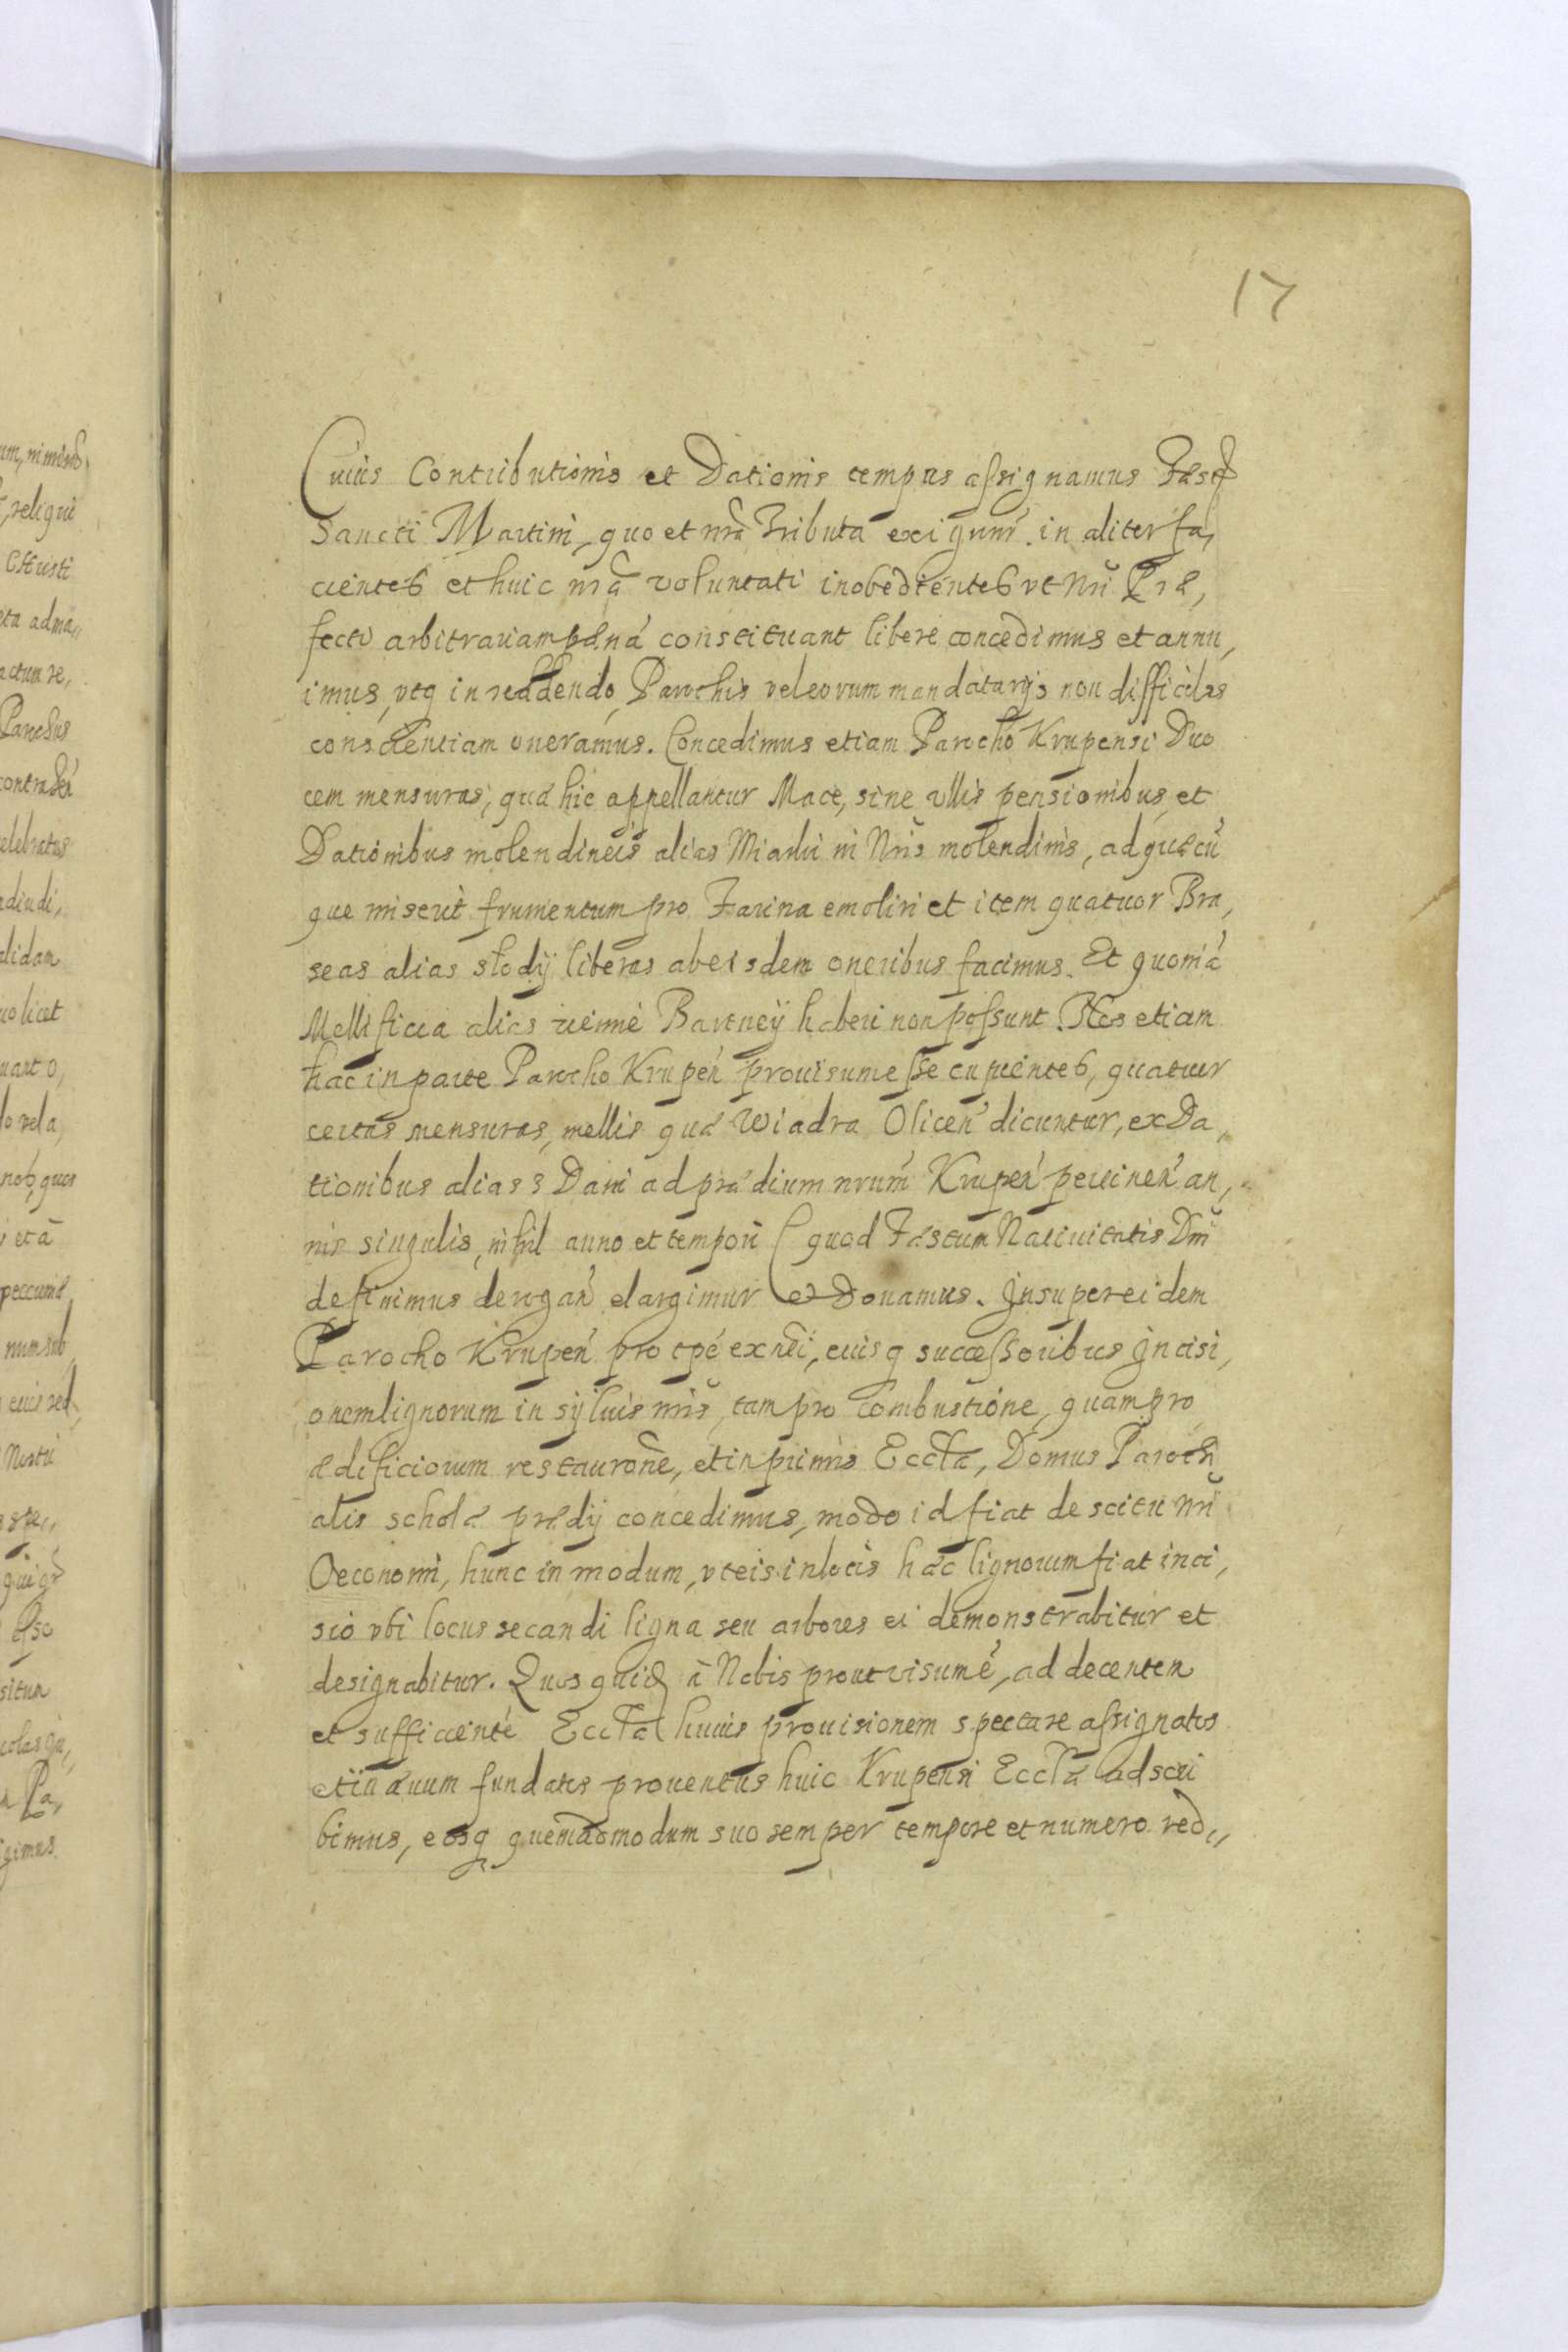 17
Cuius Contributionis et Dationis tempus assignamus Festũ
Sancti Martini, quo et nrã Tributa exigunr̃. in aliter fa,
cientes et huic nrã voluntati inobedientes vt Nr̃i Præ,
fecti arbitrariam pænã constituant libere concedimus et annu,
imus, vtq in reddendo, Parochis vel eorum mandatarijs non difficiles
conscientiam oneramus. Concedimus etiam Parocho Krupensi Duo
cem mensuras, quæ hic appellantur Mace, sine ullis pensionibus, et
Dationibus molendineis alias Miarki in Nr̃is molendinis, ad quæcũ
que miserit frumentum pro Farina emoliri et item quatuor Bra,
seas alias słody liberas ab eisdem oneribus facimus. Et quoniã
Mellificia alias ziemie Bartney haberi non possunt. Nos etiam
hac in parte Parocho Krupeñ prouisum esse cupientes, quatuor
certas mensuras, mellis quæ Wiadra Oliceñ dicuntur, ex Da,
tionibus alias s Dani ad prædium nrum̃ Krupeñ pertineñ an,
nis singulis, nihil anno et tempori (quod Festum Natiuitatis Dñi
definimus derogañ elargimur et Donamus. Insuper eidem
Parocho Krupeñ pro tpẽ exñti, eiusq successoribus Incisi,
onem lignorum in syluis nr̃is, tam pro combustione, quam pro
ædificiorum restaurõne, et in primis Ecclæ, Domus Parochi
alis scholæ prædij concedimus, modo id fiat de scitu nr̃i
Oeconomi, hunc in modum, vt eis in locis hæc lignorum fiat inci,
sio vbi locus secandi ligna seu arbores ei demonstrabitur et
designabitur. Quos quidẽ à Nobis prout visum ẽ, ad decentem
et sufficientẽ Ecclæ huius prouisionem spectare assignatos
et in æuum fundatos prouentus huic Krupensi Ecclæ adscri
bimus, eosq quemadmodum suo semper tempore et numero red,,